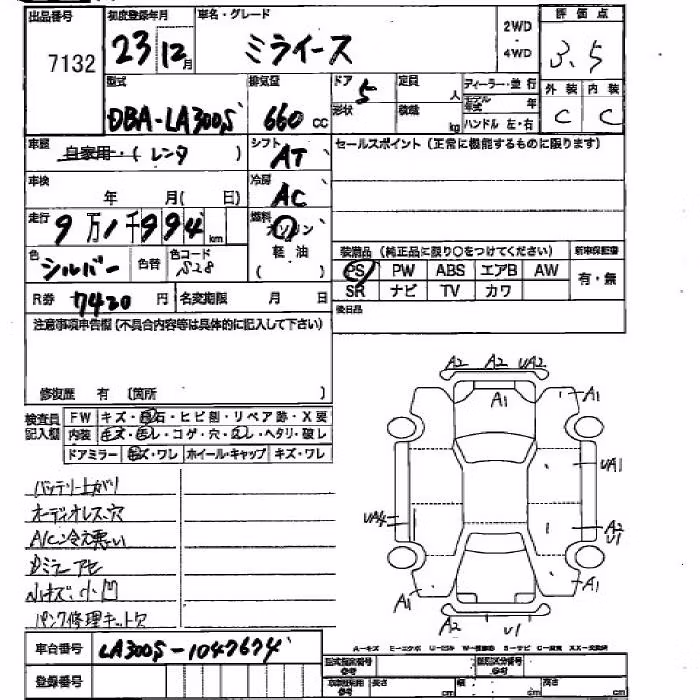 出品番号 7132
初度登録年月 23 12月
車名・グレード ミライース
2WD・4WD
評価点 3.5
外装 C 内装 C
型式 DBA-LA300S
排気量 660 cc
ドア 5 形状
定員 人
積載 kg
ディーラー・並行
モデル年式 年
ハンドル 左・右
車歴 自家用・(レンタ )
シフト AT
セールスポイント(正常に機能するものに限ります)
車検 年 月( 日)
冷房 AC
走行 9万1千994 km
燃料 ガソリン 軽油 ( )
色 シルバー 色替 色コード S28
装備品(純正品に限り○をつけてください)
新車保証書 有・無
PS PW ABS エアB AW
SR ナビ TV カワ
R券 7420円 名変期限 月 日
後日品
注意事項申告欄(不具合内容等は具体的に記入して下さい)
修復歴 有 〔箇所 〕
検査員記入欄
FW キズ・飛石・ヒビ割・リペア跡・X要
内装 キズ・コゲ・穴・ヘタリ・破レ
ドアミラー キズ・ワレ ホイール・キャップ キズ・ワレ
バッテリー上がり
オーディオレス、穴
A/C冷え悪い
Dミラーアセ
小キズ、小凹
パンク修理キット欠
A2 A2 UA2
A1 A1
UA1
UA4
A2
U1
A1 A1
A2 U1
車台番号 LA300S-1047674
登録番号
型式指定番号 参考
類別区分番号 参考
長さ cm 幅 cm 高さ cm